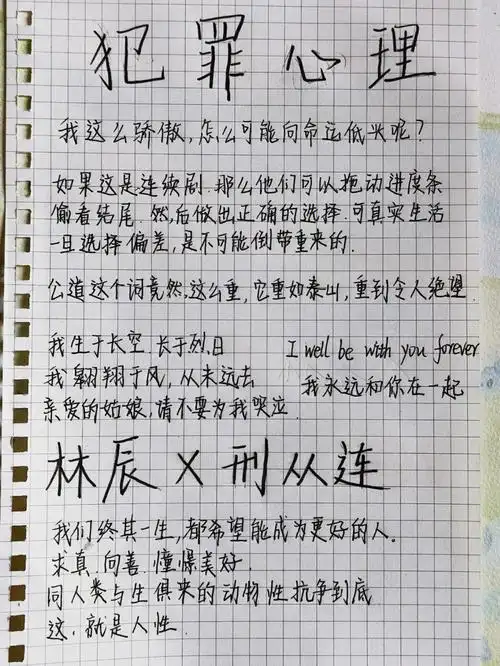 犯罪心理
我这么骄傲,怎么可能向命运低头呢?
如果这是连续剧.那么他们可以拖动进度条
偷看结尾.然后做出正确的选择.可真实生活
一旦选择偏差,是不可能倒带重来的.
公道这个词竟然,这么重,它重如泰山,重到令人绝望.
我生于长空.长于烈日
I well be with you forever
我翱翔于风,从未远去
我永远和你在一起
亲爱的姑娘,请不要为我哭泣.
林辰X刑从连
我们终其一生,都希望能成为更好的人.
求真.向善.憧憬美好.
同人类与生俱来的动物性抗争到底
这,就是人性.